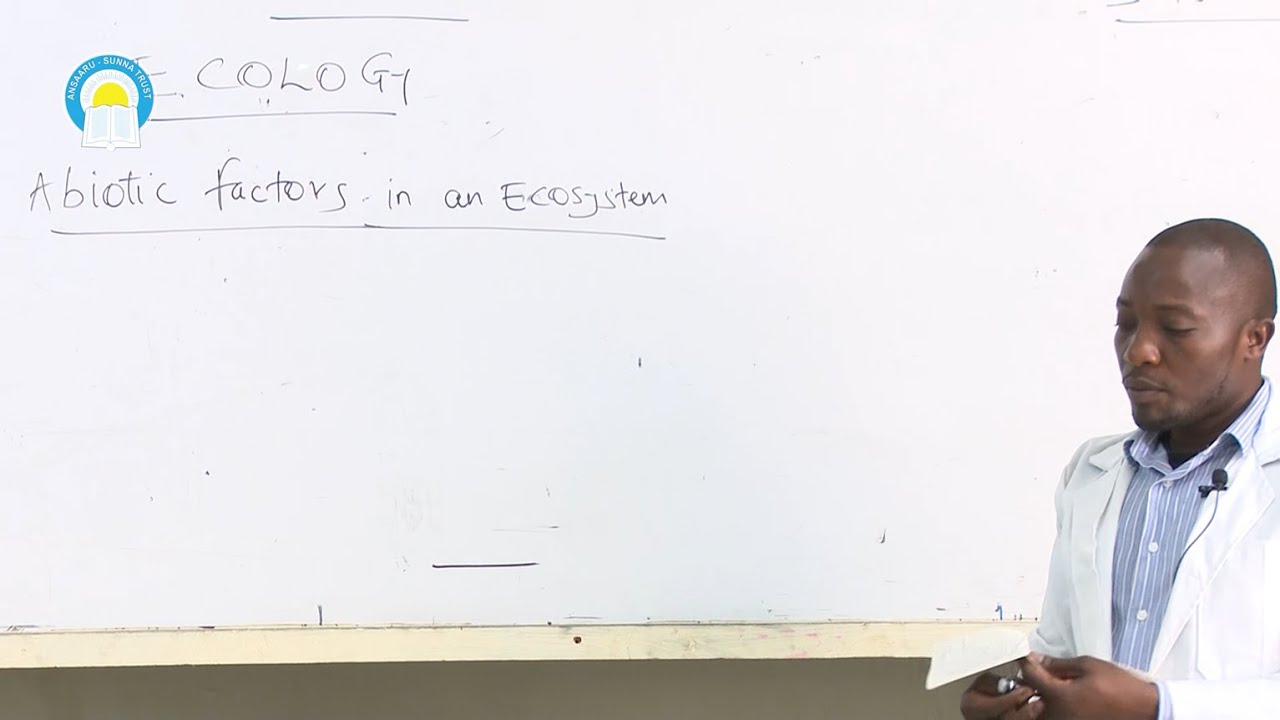 ECOLOGY
Abiotic factors in an Ecosystem
ANSAARU - SUNNA TRUST